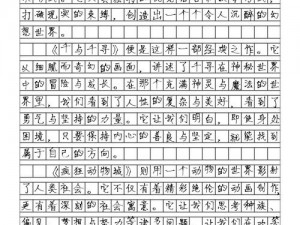 打破现实的束缚，创造出一个个令人沉醉的幻
想世界。
《千与千寻》便是这样一部经典之作。它
以细腻而奇幻的画面，讲述了千寻在神秘世界
中的冒险与成长。在那个充满神灵与魔法的世
界里，我们看到了人性的复杂与美好，看到了
勇气与坚持的力量。它让我们明白，即使身处
困境，只要保持内心的善良与坚定，就能找到
属于自己的方向。
《疯狂动物城》则用一个动物的世界影射
了人类社会。它不仅有着精彩绝伦的动画制作，
更有着深刻的社会寓意。它让我们思考种族、